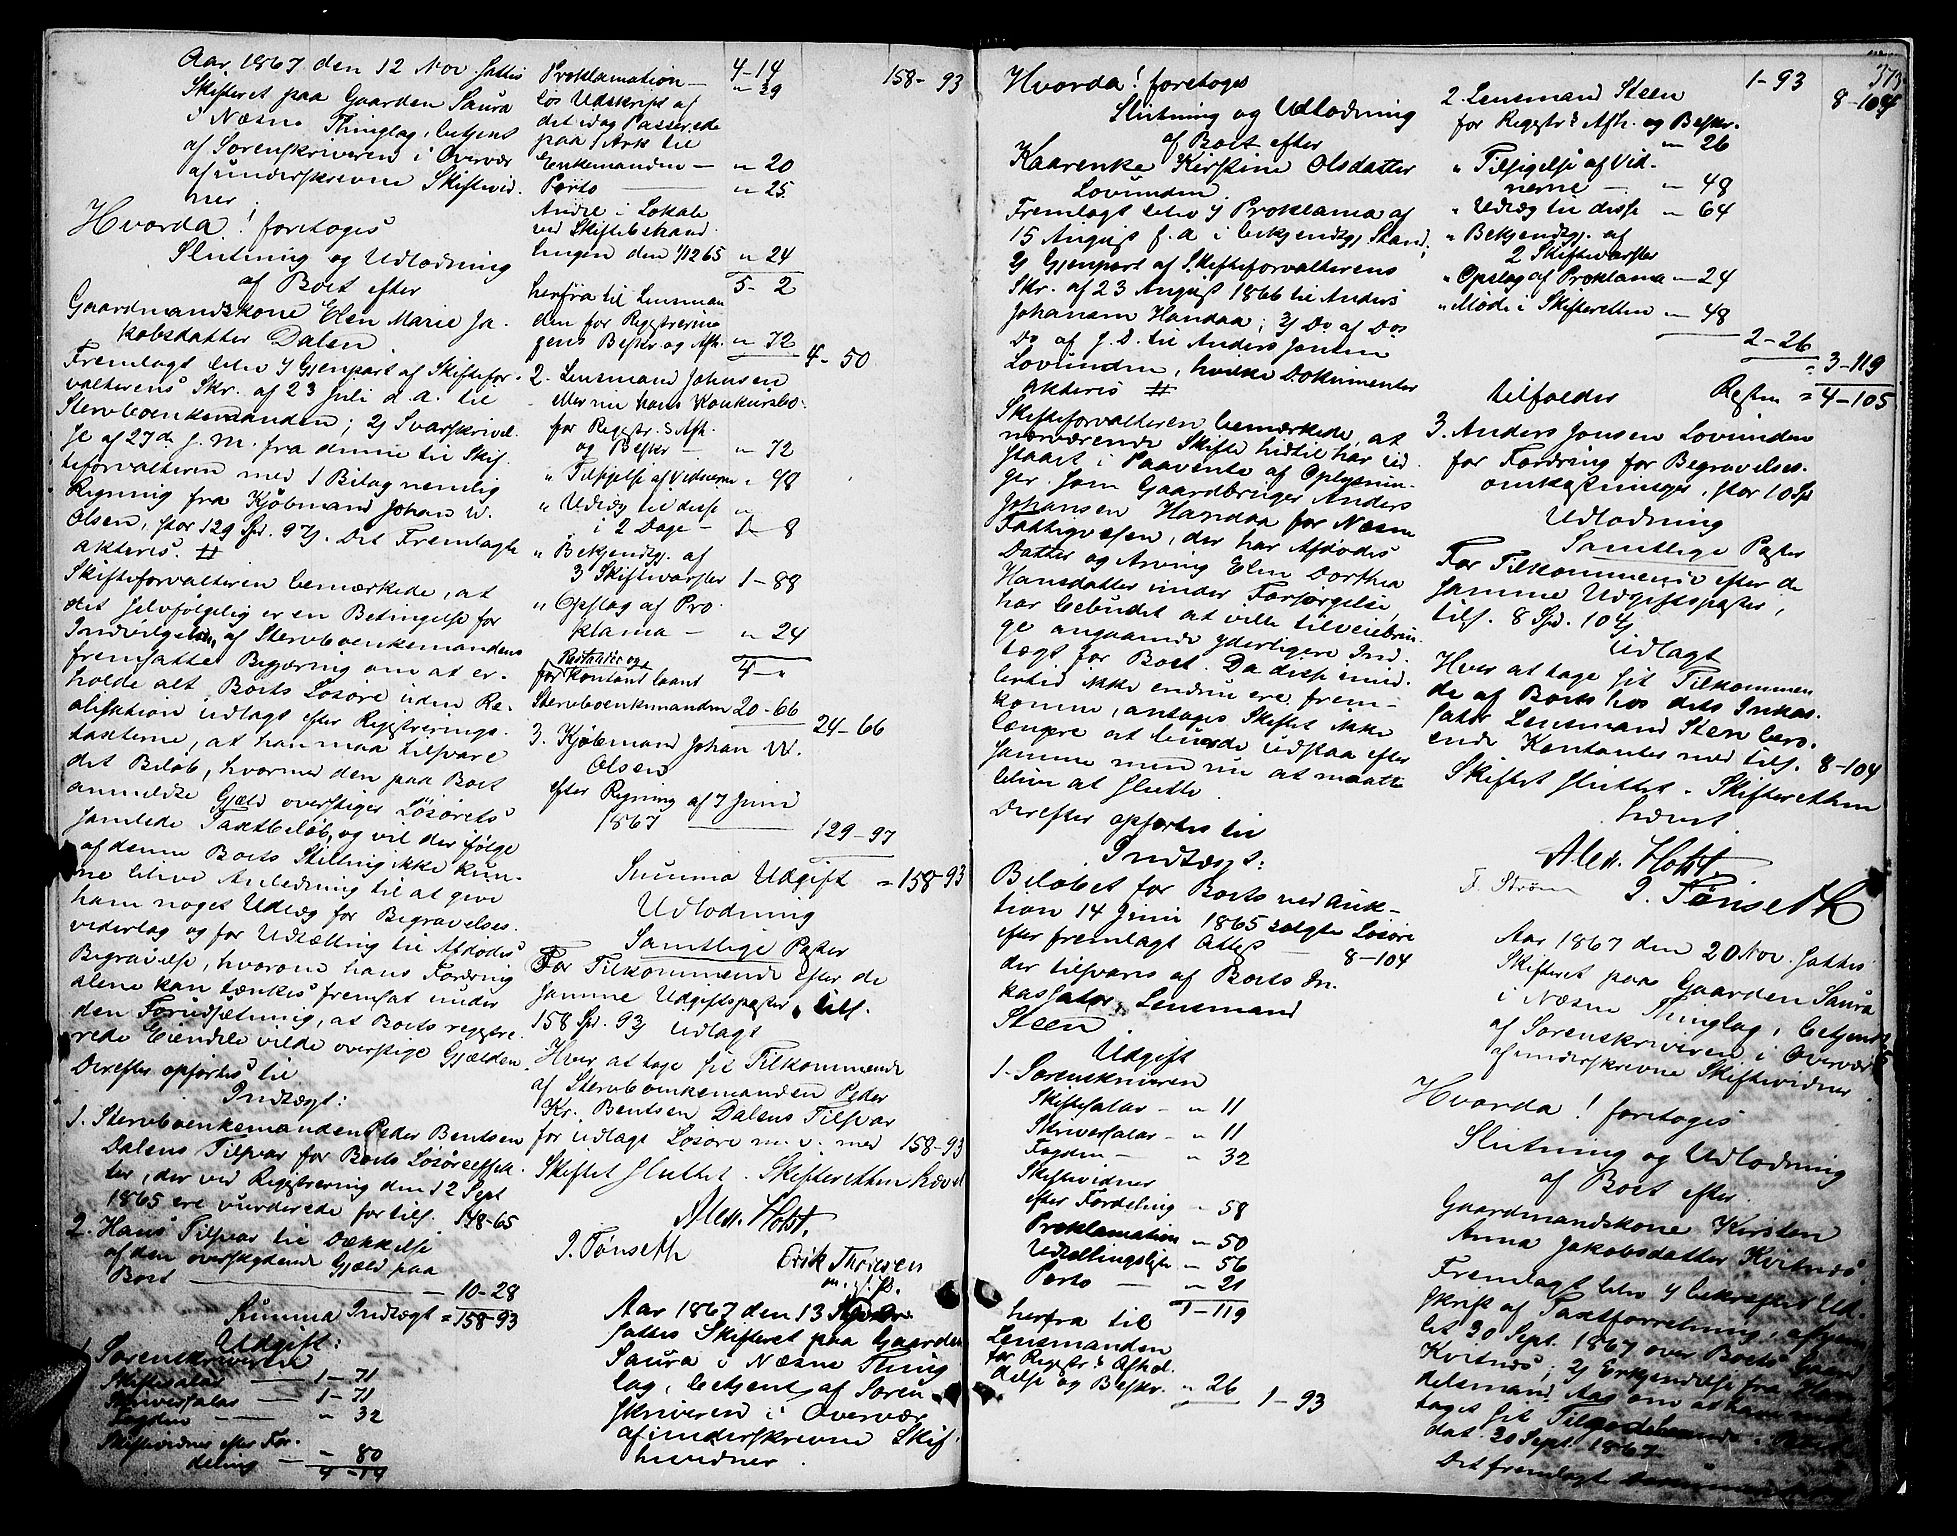 Aar 1867 den 12 Nov. sattes
Skifteret paa Gaarden Saura
i Næsne Thinglag, betjent
af Sorenskriveren i Overvær
af underskrevne Skiftevid-
ner.
Hvorda! foretoges
Slutning og Udlodning
af Boet efter
Gaardmandskone Elen Marie Ja-
kobsdatter Dalen.
Fremlagt blev 1) Gjenpart af Skiftefor-
valterens Skr. af 23 Juli d.a. til
Stervboenkemanden; 2) Svarskrivel-
se af 27de s. M. fra denne til Skif-
teforvalteren med 1 Bilag nemlig
Regning fra Kjøbmand Johan W.
Olsen, stor 129 Spd. 97 ẞ. Det Fremlagte
akteres. #
Skifteforvalteren bemærkede, at
det selvfølgelig er en Betingelse for
Indvilgelsen af Stervboenkemandens
fremsatte Begjæring om at er-
holde alt Boets Løsøre uden Re-
alisation udlagt efter Registrerings-
taxterne, at han maa tilsvare
det Beløb, hvormed den paa Boet
anmeldte Gjæld overstiger Løsørets
samlede Taxtbeløb, og vil der ifølge
af denne Boets Stilling ikke kun-
ne blive Anledning til at give
ham noget Udlæg for Begravelses-
vederlag og for Udtælling til Afdødes
Begravelse, hvorom hans Fordring
alene kan tænkes fremsat under
den Forudsætning, at Boets registre-
rede Eiendele vilde overstige Gjælden.
Derefter opførtes til
Indtægt:
1. Stervboenkemanden Peder Bentsen
Dalens Tilsvar for Boets Løsøreeffek-
ter, der ved Registrering den 12 Sept
1865 ere vurderede for tils. 148-65
2. Hans Tilsvar til Dækkelse
af den overskydende Gjæld paa
Boet — 10-28
Summa Indtægt = 158-93
Udgift:
1. Sorenskriveren
Skiftesalær — 1-71
Skriversalær — 1-71
Fogden — " 32
Skiftevidner efter For-
deling — " 80
4-14
Proklamation — 4-14 158-93
" 39
løs Udskrift af
det idag Passerede
paa 1 Ark til
Enkemanden — " 20
Porto — " 25
Andel i Lokale
ved Skiftebehand-
lingen den 1/12 65 " 24
5-2
herfra til Lensman-
den for Registrerin-
gens Beskr. og Afh. " 72
4-50
2. Lensmand Johnsen
eller nu hans Konkursbo
for Registr.s Afh.
og Beskr — " 72
" Tilsigelse af Vidnerne " 48
" Udlæg til disse "
i 2 Dage — 1-8
" Bekjendtg. af
3 Skiftevarsler 1-88
" Opslag af Pro-
klama — " 24
4-"
for kontant laant
Stervboenkemanden 20-66
24-66
3. Kjøbmand Johan W.
Olsen
efter Regning af 7 Juni
1867 — 129-97
Summa Udgift = 158-93
Udlodning
Samtlige Poster
For Tilkommende efter de
samme Udgiftsposter, tils.
158 Spd. 93 ẞ Udlagt
Hver at tage sit Tilkommende
af Stervboenkemanden Peder
Kr. Bentsen Dalens Tilsvar
for udlagt Løsøre m. v. med 158-93
Skiftet sluttet. Skifteretten hævet
Alex. Holst.
J. Tønseth Erik Thoresen
m. p. P.
Aar 1867 den 13
sattes Skifteret paa Gaarden
Saura i Næsne Thing-
lag, betjent af Soren-
skriveren i Overvær
af underskrevne Skif-
tevidner.
373
Hvorda! foretoges
Slutning og Udlodning
af Boet efter
Kaarenke Kirstine Olsdatter
Lovunden.
Fremlagt blev 1) Proklama af
15 August f.a. i bekjendtg. Stand;
2) Gjenpart af Skifteforvalterens
Skr. af 23 August 1866 til Anders
Johansen Handaa; 3) Do af Dos
Do af s. D. til Anders Jonsen
Lovunden, hvilke Dokumenter
akteres #
Skifteforvalteren bemærkede, at
nærværende Skifte hidtil har ud-
staaet i Paavente af Oplysnin-
ger, som Gaardbruger Anders
Johansen Handaa for Næsne
Fattigvæsen, der har Afdødes
Datter og Arving Elen Dorthea
Hansdatter under Forsørgelse,
har bebudet at ville tilveiebrin-
ge angaaende yderligere Ind-
tægt for Boet. Da disse imid-
lertid ikke endnu ere frem-
komne, antages Skiftet ikke
længere at burde udstaa efter
samme men nu at maatte
blive at slutte.
Derefter opførtes til
Indtægt:
Beløbet for Boets ved Auk-
tion 14 Juni 1865 solgte Løsøre
efter fremlagt Attest — 8-104
der tilsvares af Boets In-
kassator, Lensmand
Steen
Udgift
1. Sorenskriveren
Skiftesalær — " 11
Skriversalær — " 11
Fogden — " 32
Skiftevidner
efter Fordeling " 58
Proklamation " 50
Udlodningsligste " 56
Porto — " 21
1-119
herfra til
Lensmanden
for Registr.s Afhol-
delse og Beskr. " 26 1-93
1-93 8-104
2. Lensmand Steen
for Registr.s Afh. og Beskr.
" 26
" Tilsigelse af Vid-
nerne — " 48
" Udlæg til disse " 64
" Bekjendtg. af
2 Skiftevarsler
" Opslag af Proklama — 24
" Møde i Skifteretten — 48
2-26
= 3-119
tilfælder Resten = 4-105
3. Anders Jonsen Lovunden
for Fordring for Begravelses-
omkostninger, stor 10 Spd
Udlodning
Samtlige Poster
For Tilkommende efter de
samme Udgiftsposter,
tils. 8 Spd. 104 ẞ
Udlagt
Hver at tage sit Tilkommen-
de af Boets hos dets Inkas-
sator Lensmand Steen bero-
ende Kontanter med tils. 8-104
Skiftet sluttet. Skifteretten
hævet.
Alex. Holst.
F. Strøm J. Tønseth
Aar 1867 den 20 Nov. sattes
Skifteret paa Gaarden Saura
i Næsne Thinglag, betjent
af Sorenskriveren i Overvær
af underskrevne Skiftevidner.
Hvorda! foretoges
Slutning og Udlodning
af Boet efter
Gaardmandskone Kirsten
Anna Jakobsdatter Kvitnæs.
Fremlagt blev 1) bekræftet Ud-
skrift af Taxtforretning, afhjem-
let 30 Sept. 1867 over Boets Gaard
Kvitnæs; 2) Erkjendelse fra Han-
delsmand Aas om at have mod-
taget sit Tilgodehavende
dat. 30 Sept. 1867.
Det fremlagte